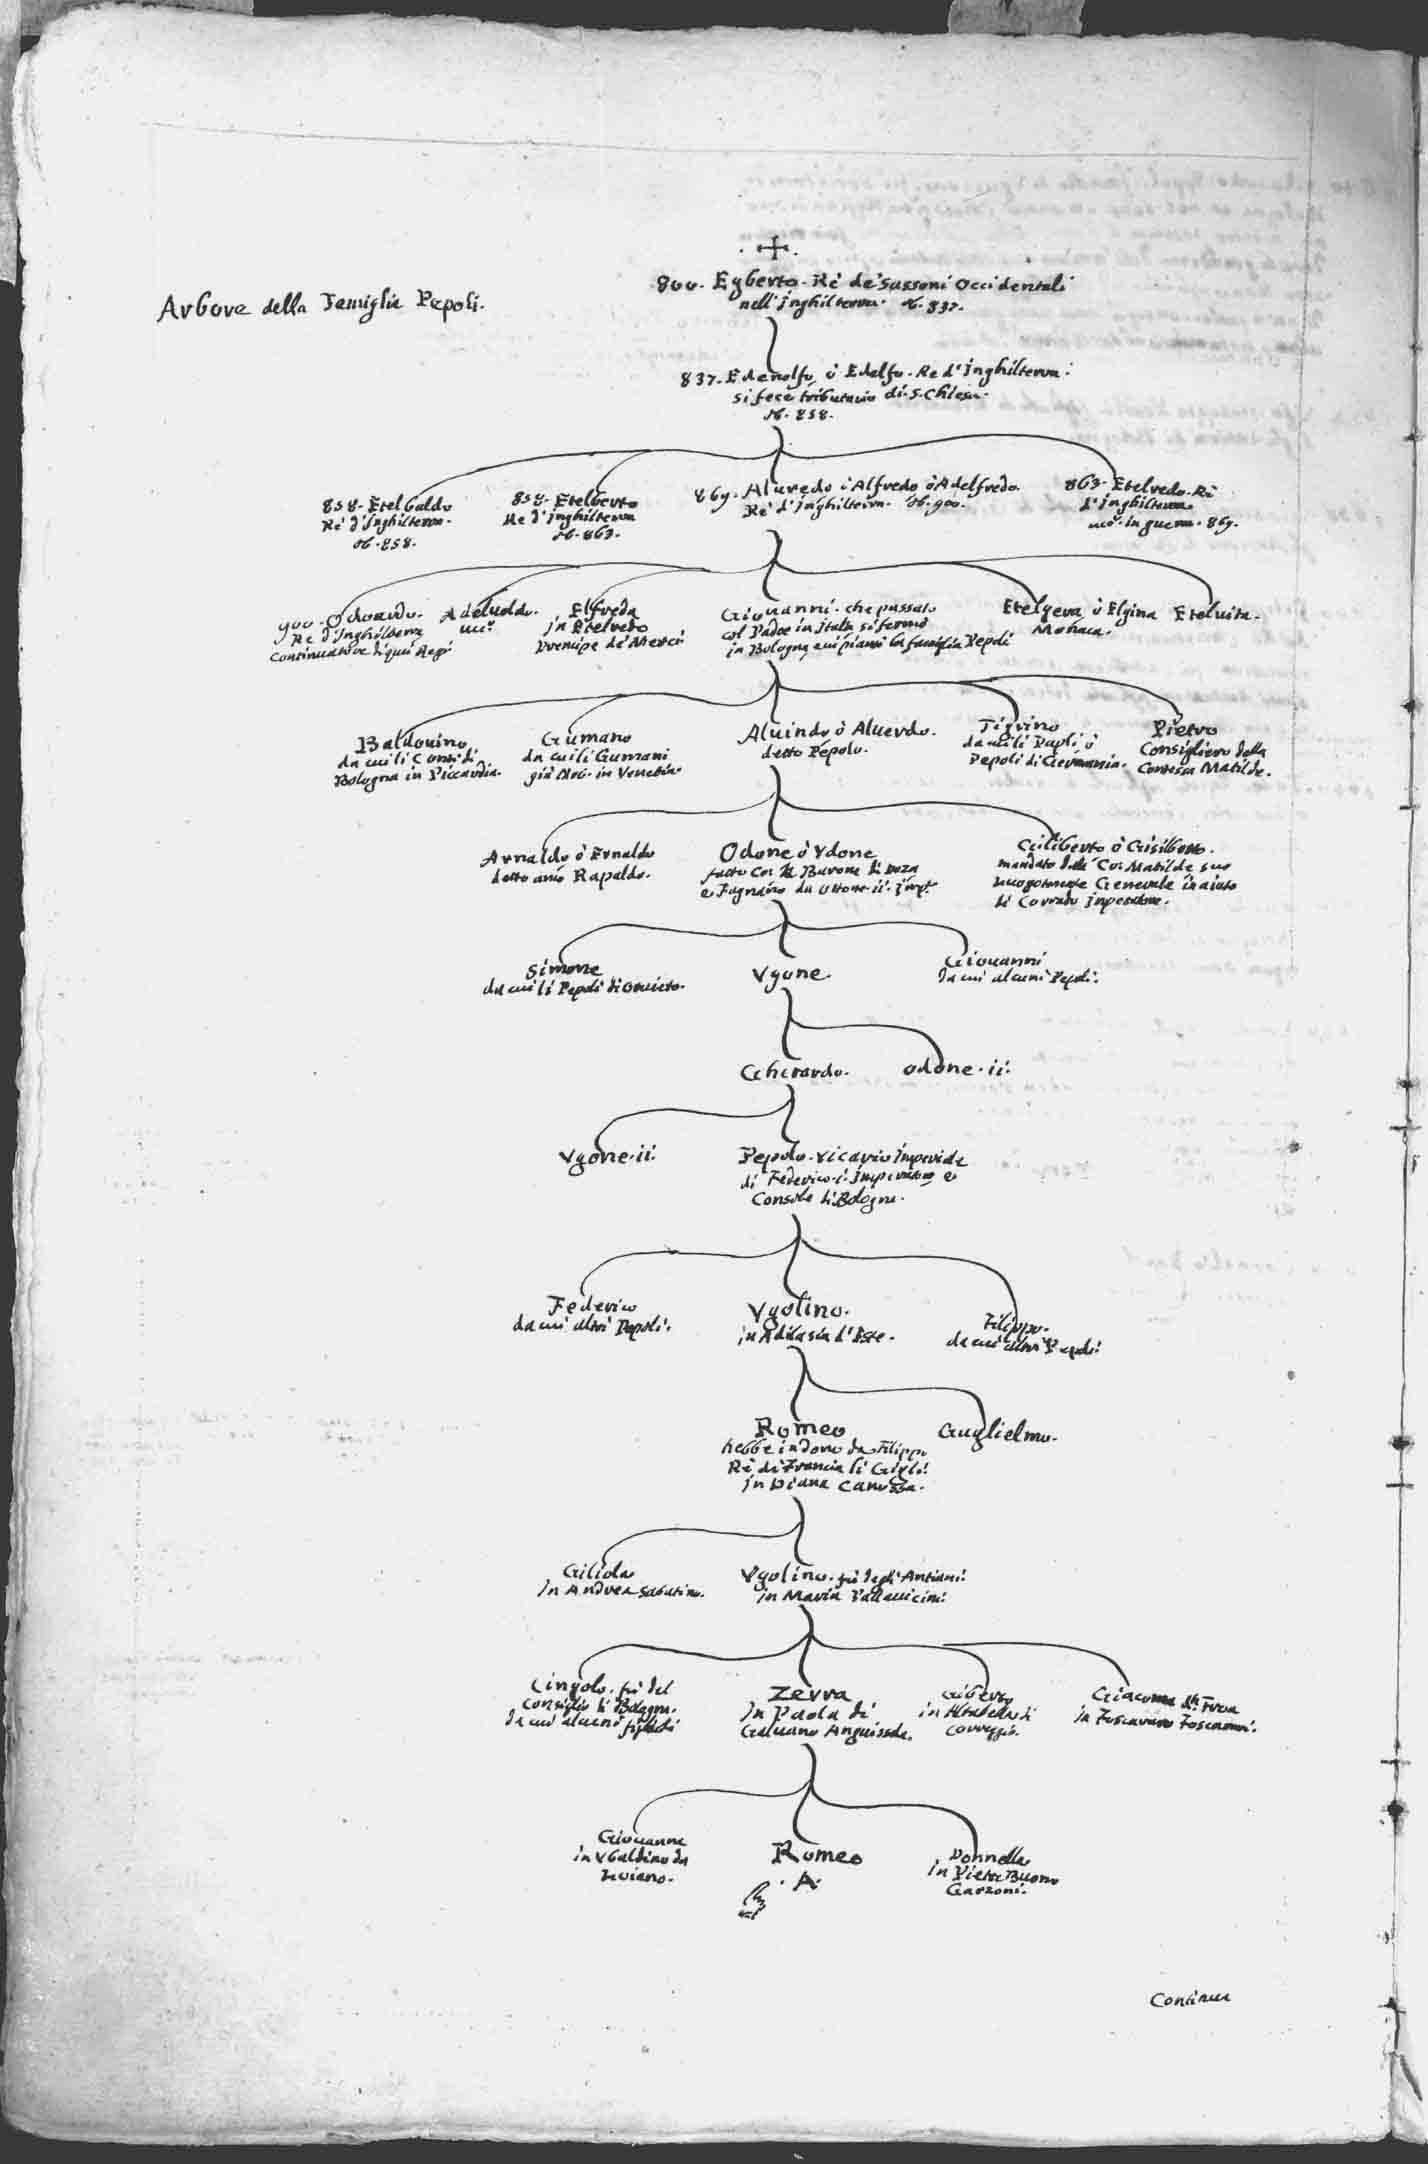 Arbore della Famiglia Pepoli.
800. Egberto. Rè de Sassoni Occidentali
nell'jnghilterra. ob. 837.
837. Edenolfo, ò Edelfo. Re d'jnghilterra.
si fece tributario di. S. Chiesa.
ob. 858.
858. Etelbaldo
Rè d'jnghilterra.
ob. 858.
858. Etelberto
Re d'jnghilterra
ob. 863.
869. Aluredo ò Alfredo ò Adelfredo
Rè d'jnghilterra. ob. 900.
863. Etelredo. Rè
d'jnghilterra
in guerra. 869.
900. Odoardo.
Re d'jnghilterra
continuatore di quei Regi
Adelualdo.
Elfreda
jn Etelredo
Prencipe de Merci
Giouanni. che passato
col Padre in jtalia si fermò
in Bologna, e iui piantò la famiglia Pepoli
Etelgeua, ò Elgina
Monaca.
Eteluita.
Baldouino
da cui li Conti di
Bologna in Piccardia.
Gumano
da cui li Gumani
già Nob. in Venetia.
Aluindo ò Aluerdo.
detto Pepolo.
Tigrino
da cui li Paoli ò
Pepoli di Germania.
Pietro
Consigliero della
Contessa Matilde.
Arnaldo ò Ernaldo
detto anco Rapaldo.
Odone ò Vdone
fatto Co: Barone di Doza
e Fagnano da Ottone. ii. jmp.
Giliberto ò Gisiberto.
mandato dalla Co: Matilde suo
luogotenente Generale in aiuto
di Corrado jmperatore.
Simone
da cui li Pepoli di Oruieto.
Vgone.
Giouanni
da cui alcuni Pepoli.
Gherardo.
Odone. ii.
Vgone. ii.
Pepolo. Vicario jmperiale
di Federico. i. jmperatore e
Console di Bologna.
Federico
da cui altri Pepoli.
Vgolino.
in Adilasia d'Este.
Filippo.
da cui altri Pepoli.
Romeo
hebbe in dono da Filippo
Rè di Francia li Gigli.
jn Diana Canossa.
Guglielmo.
Giliola
jn Andrea Sabatino.
Vgolino. fù degli Antiani.
in Maria Pallauicini.
Cingolo. fù del
Consiglio di Bologna.
da cui alcuni figlioli
Zerra
jn Paola di
Galuano Anguissola.
Giberto
in di
Correggio.
Giacoma
in Foscararo Foscarari.
Giouanna
in Vbaldino da
Loiano.
Romeo
. A.
Donnella
in Pietro Buono
Garzoni.
Continua